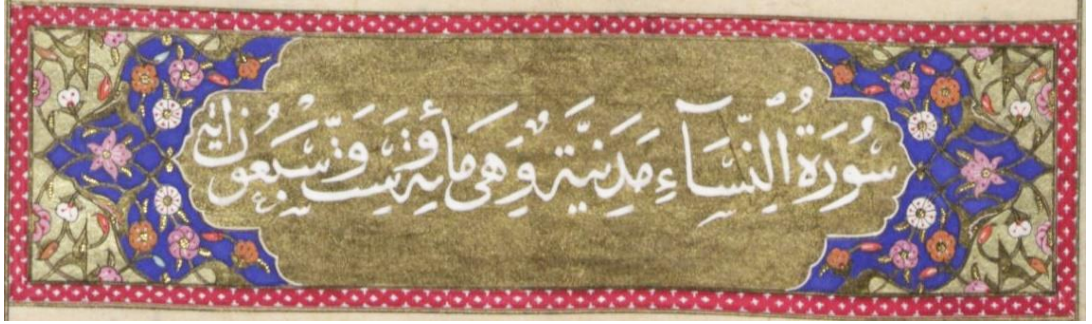 سُورَةُ النِّسَاءِ مَدَنِيَّةٌ وَهِىَ مِائَةٌ وَسِتٌّ وَسَبْعُونَ اٰيَة